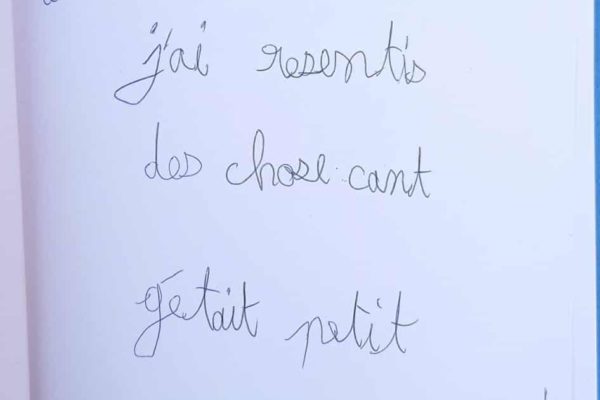 j'ai resentis
des chose cant
gétait petit